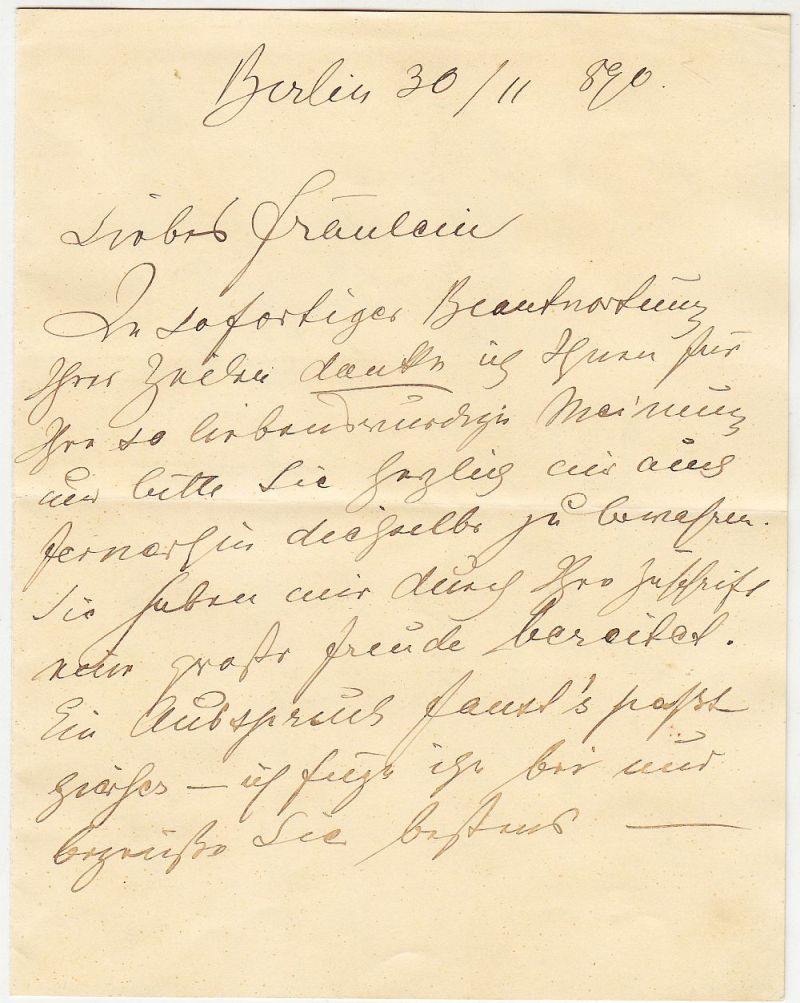 Berlin 30/11 890.
Liebes Fräulein
In sofortiger Beantwortung
Ihrer Zeilen danke ich Ihnen für
Ihre so liebenswürdige Meinung
und bitte Sie herzlich mir auch
fernerhin dieselbe zu bewahren.
Sie haben mir durch Ihre Zuschrift
eine große Freude bereitet.
Ein Ausspruch Faust's paßt
hierher — ich füge ihn bei und
begrüße Sie bestens —